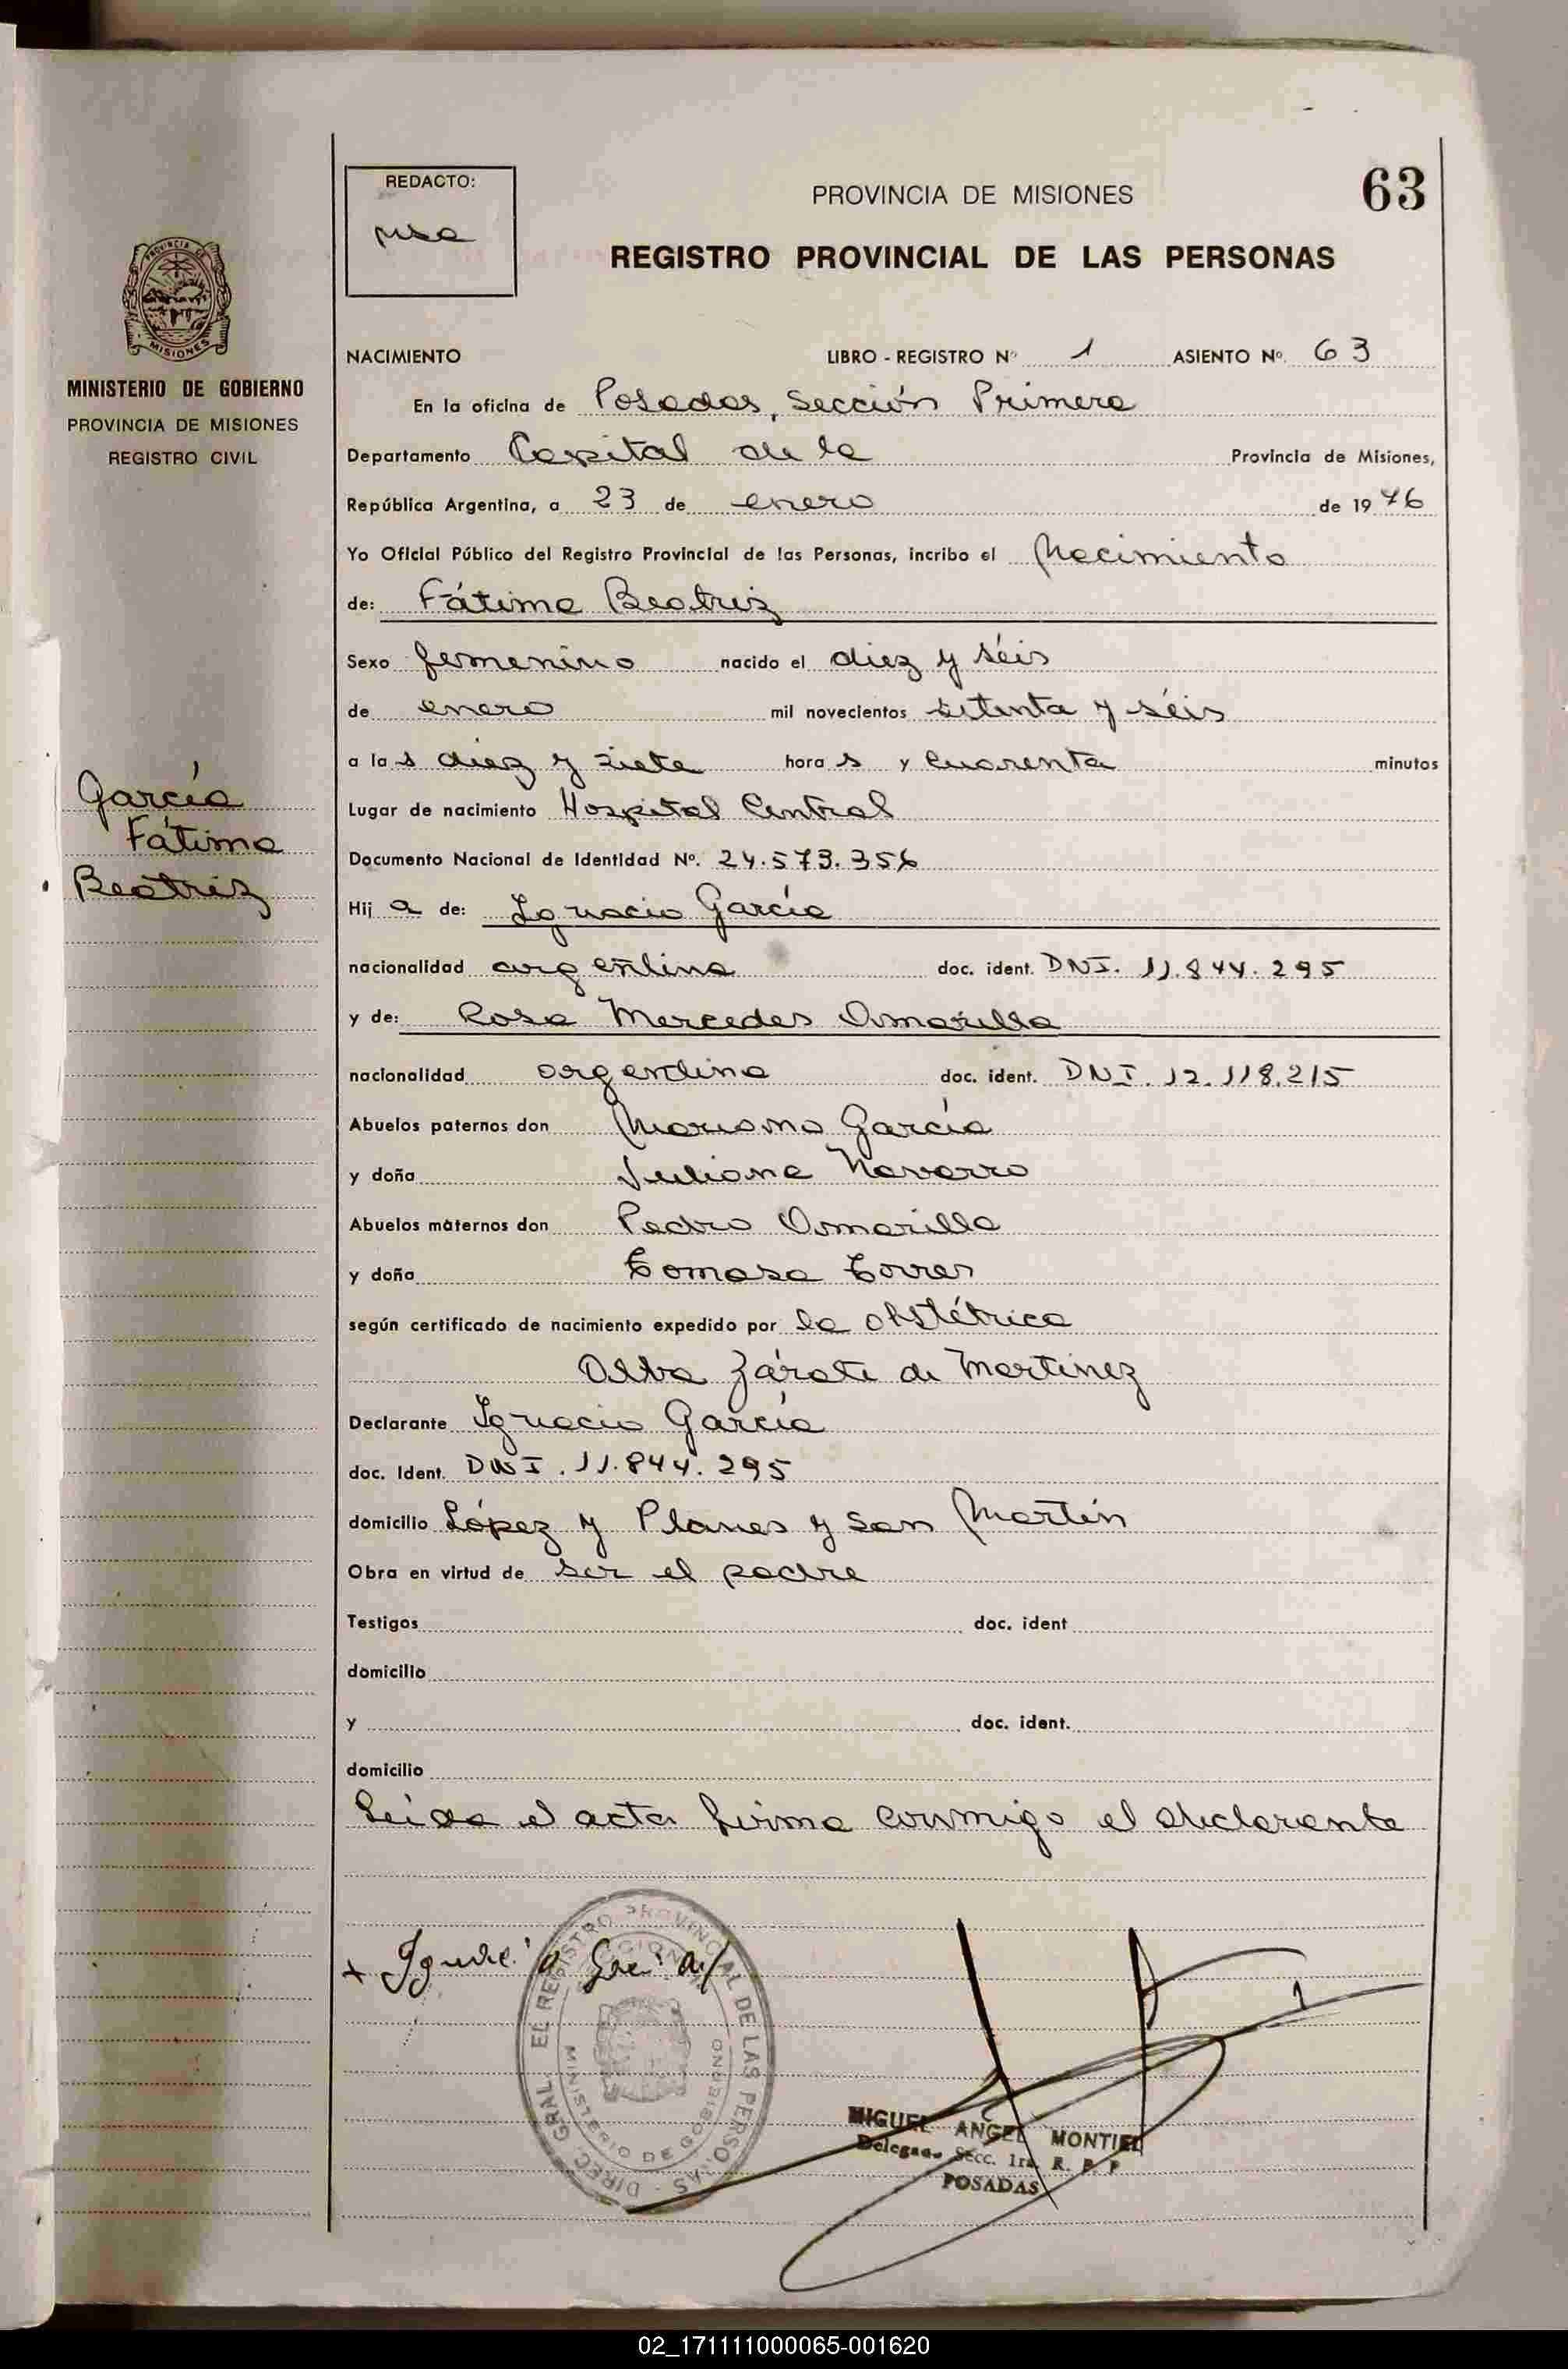 REDACTO:
PROVINCIA DE MISIONES
63
REGISTRO PROVINCIAL DE LAS PERSONAS
PROVINCIA DE
MISIONES
MINISTERIO DE GOBIERNO
PROVINCIA DE MISIONES
REGISTRO CIVIL
García
Fátima
Beatriz
NACIMIENTO LIBRO - REGISTRO Nº 1 ASIENTO Nº 63
En la oficina de Posadas, Sección Primera
Departamento Capital de la Provincia de Misiones,
República Argentina, a 23 de enero de 1976
Yo Oficial Público del Registro Provincial de las Personas, incribo el Nacimiento
de: Fátima Beatriz
Sexo femenino nacido el diez y séis
de enero mil novecientos setenta y séis
a las diez y siete horas y cuarenta minutos
Lugar de nacimiento Hospital Central
Documento Nacional de Identidad Nº. 24.573.356
Hija de: Ignacio García
nacionalidad argentina doc. ident. DNI. 11.844.295
y de: Rosa Mercedes Amarilla
nacionalidad argentina doc. ident. DNI. 12.118.215
Abuelos paternos don Mariano García
y doña Juliana Navarro
Abuelos maternos don Pedro Amarilla
y doña Tomasa Torres
según certificado de nacimiento expedido por la obstétrica
Alba Zárate de Martinez
Declarante Ignacio García
doc. Ident. DNI. 11.844.295
domicilio López y Planes y San Martín
Obra en virtud de ser el padre
Testigos doc. ident
domicilio
y doc. ident.
domicilio
Leída el acta firma conmigo el declarante
DIREC. GRAL. EL REGISTRO PROVINCIAL DE LAS PERSONAS
MINISTERIO DE GOBIERNO
MIGUEL ANGEL MONTIEL
Delegado Secc. 1ra. R. P. P
POSADAS
02_171111000065-001620